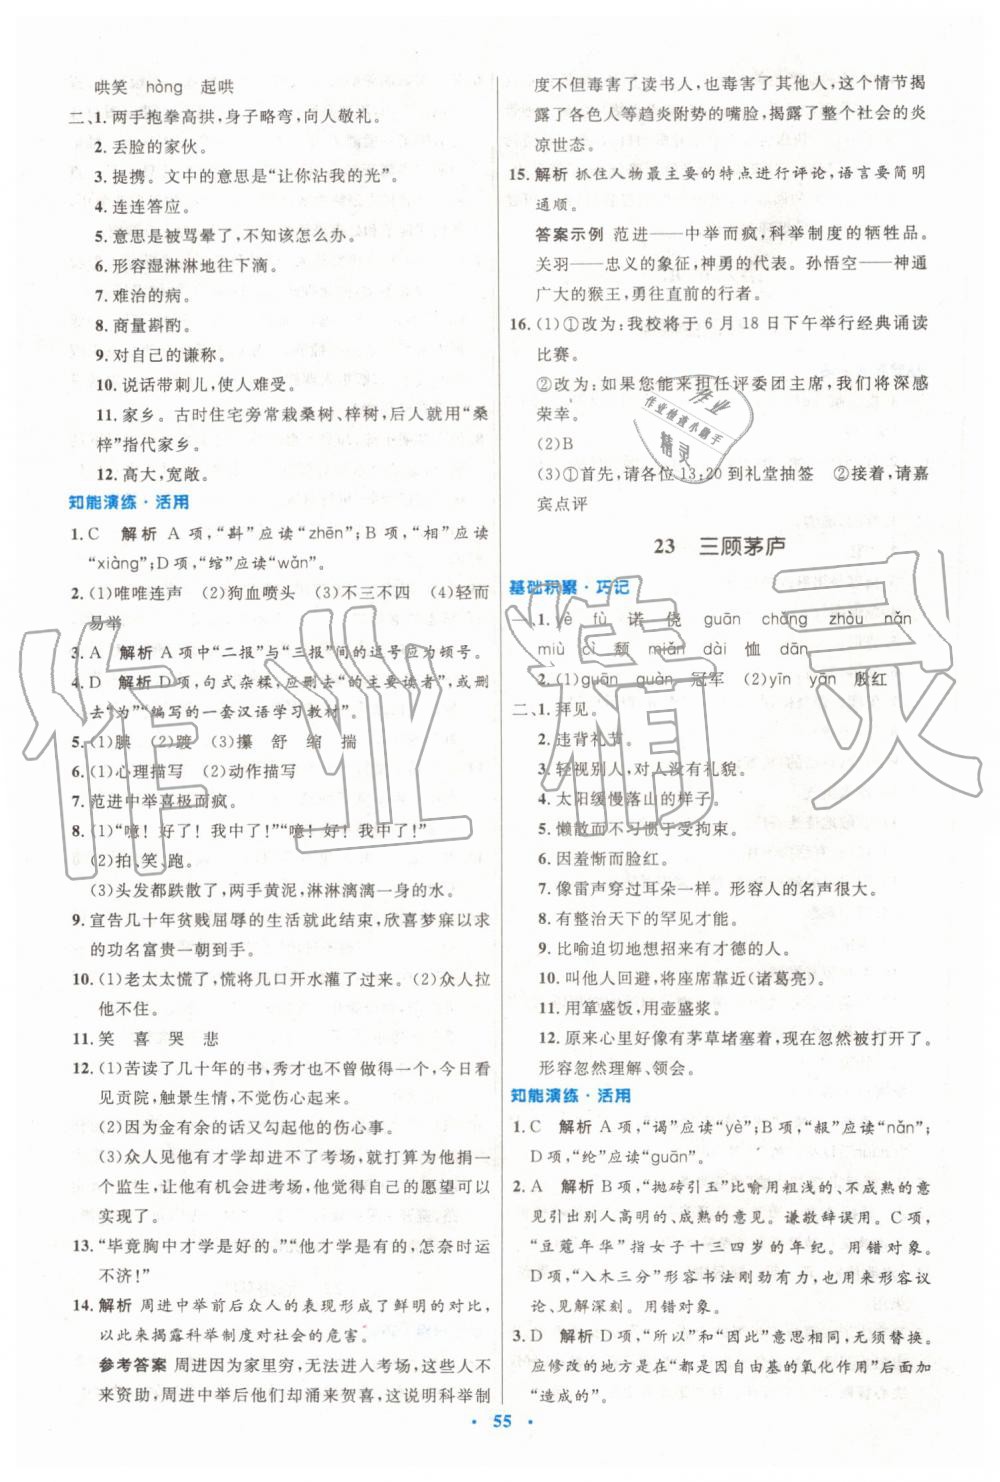 哄笑　hòng　起哄
二、1. 两手抱拳高拱，身子略弯，向人敬礼。
2. 丢脸的家伙。
3. 提携。文中的意思是“让你沾我的光”。
4. 连连答应。
5. 意思是被骂晕了，不知该怎么办。
6. 形容湿淋淋地往下滴。
7. 难治的病。
8. 商量斟酌。
9. 对自己的谦称。
10. 说话带刺儿，使人难受。
11. 家乡。古时住宅旁常栽桑树、梓树，后人就用“桑
梓”指代家乡。
12. 高大，宽敞。
知能演练·活用
1. C　解析　A 项，“斟”应读“zhēn”；B 项，“相”应读
“xiàng”，“绾”应读“wǎn”。
2. (1)唯唯连声　(2)狗血喷头　(3)不三不四　(4)轻而
易举
3. A　解析　A 项中“二报”与“三报”间的逗号应为顿号。
4. D　解析　D 项，句式杂糅，应删去“的主要读者”，或删
去“为”“编写的一套汉语学习教材”。
5. (1)腆　(2)踱　(3)攥　舒　缩　揣
6. (1)心理描写　(2)动作描写
7. 范进中举喜极而疯。
8. (1)“噫！好了！我中了！”“噫！好！我中了！”
(2)拍、笑、跑。
(3)头发都跌散了，两手黄泥，淋淋漓漓一身的水。
9. 宣告几十年贫贱屈辱的生活就此结束，欣喜梦寐以求
的功名富贵一朝到手。
10. (1)老太太慌了，慌将几口开水灌了过来。(2)众人拉
他不住。
11. 笑　喜　哭　悲
12. (1)苦读了几十年的书，秀才也不曾做得一个，今天看
见贡院，触景生情，不觉伤心起来。
(2)因为金有余的话又勾起他的伤心事。
(3)众人见他有才学却进不了考场，就打算为他捐一
个监生，让他有机会进考场，他觉得自己的愿望可以
实现了。
13. “毕竟胸中才学是好的。”“他才学是有的，怎奈时运
不济！”
14. 解析　周进中举前后众人的表现形成了鲜明的对比，
以此来揭露科举制度对社会的危害。
参考答案　周进因为家里穷，无法进入考场，这些人不
来资助，周进中举后他们却涌来贺喜，这说明科举制
度不但毒害了读书人，也毒害了其他人，这个情节揭
露了各色人等趋炎附势的嘴脸，揭露了整个社会的炎
凉世态。
15. 解析　抓住人物最主要的特点进行评论，语言要简明
通顺。
答案示例　范进——中举而疯，科举制度的牺牲品。
关羽——忠义的象征，神勇的代表。孙悟空——神通
广大的猴王，勇往直前的行者。
16. (1)①改为：我校将于 6 月 18 日下午举行经典诵读
比赛。
②改为：如果您能来担任评委团主席，我们将深感
荣幸。
(2)B
(3)①首先，请各位 13：20 到礼堂抽签　②接着，请嘉
宾点评
23　三顾茅庐
基础积累·巧记
一、1. yè　fù　诺　侥　guān　chǎng　zhòu　nǎn
miù　cì　颓　miǎn　dài　恤　dān
2. (1)guān　guàn　冠军　(2)yīn　yān　殷红
二、1. 拜见。
2. 违背礼节。
3. 轻视别人，对人没有礼貌。
4. 太阳缓慢落山的样子。
5. 懒散而不习惯于受拘束。
6. 因羞惭而脸红。
7. 像雷声穿过耳朵一样。形容人的名声很大。
8. 有整治天下的罕见才能。
9. 比喻迫切地想招来有才德的人。
10. 叫他人回避，将座席靠近(诸葛亮)。
11. 用箪盛饭，用壶盛浆。
12. 原来心里好像有茅草堵塞着，现在忽然被打开了。
形容忽然理解、领会。
知能演练·活用
1. C　解析　A 项，“谒”应读“yè”；B 项，“赧”应读“nǎn”；
D 项，“纶”应读“guān”。
2. A　解析　B 项，“抛砖引玉”比喻用粗浅的、不成熟的意
见引出别人高明的、成熟的意见。谦敬辞误用。C 项，
“豆蔻年华”指女子十三四岁的年纪。用错对象。
D 项，“入木三分”形容书法刚劲有力，也用来形容议
论、见解深刻。用错对象。
3. D　解析　D 项，“所以”和“因此”意思相同，无须替换。
应修改的地方是在“都是因自由基的氧化作用”后面加
“造成的”。
55
作业
作业检查小助手
精灵
作业精灵